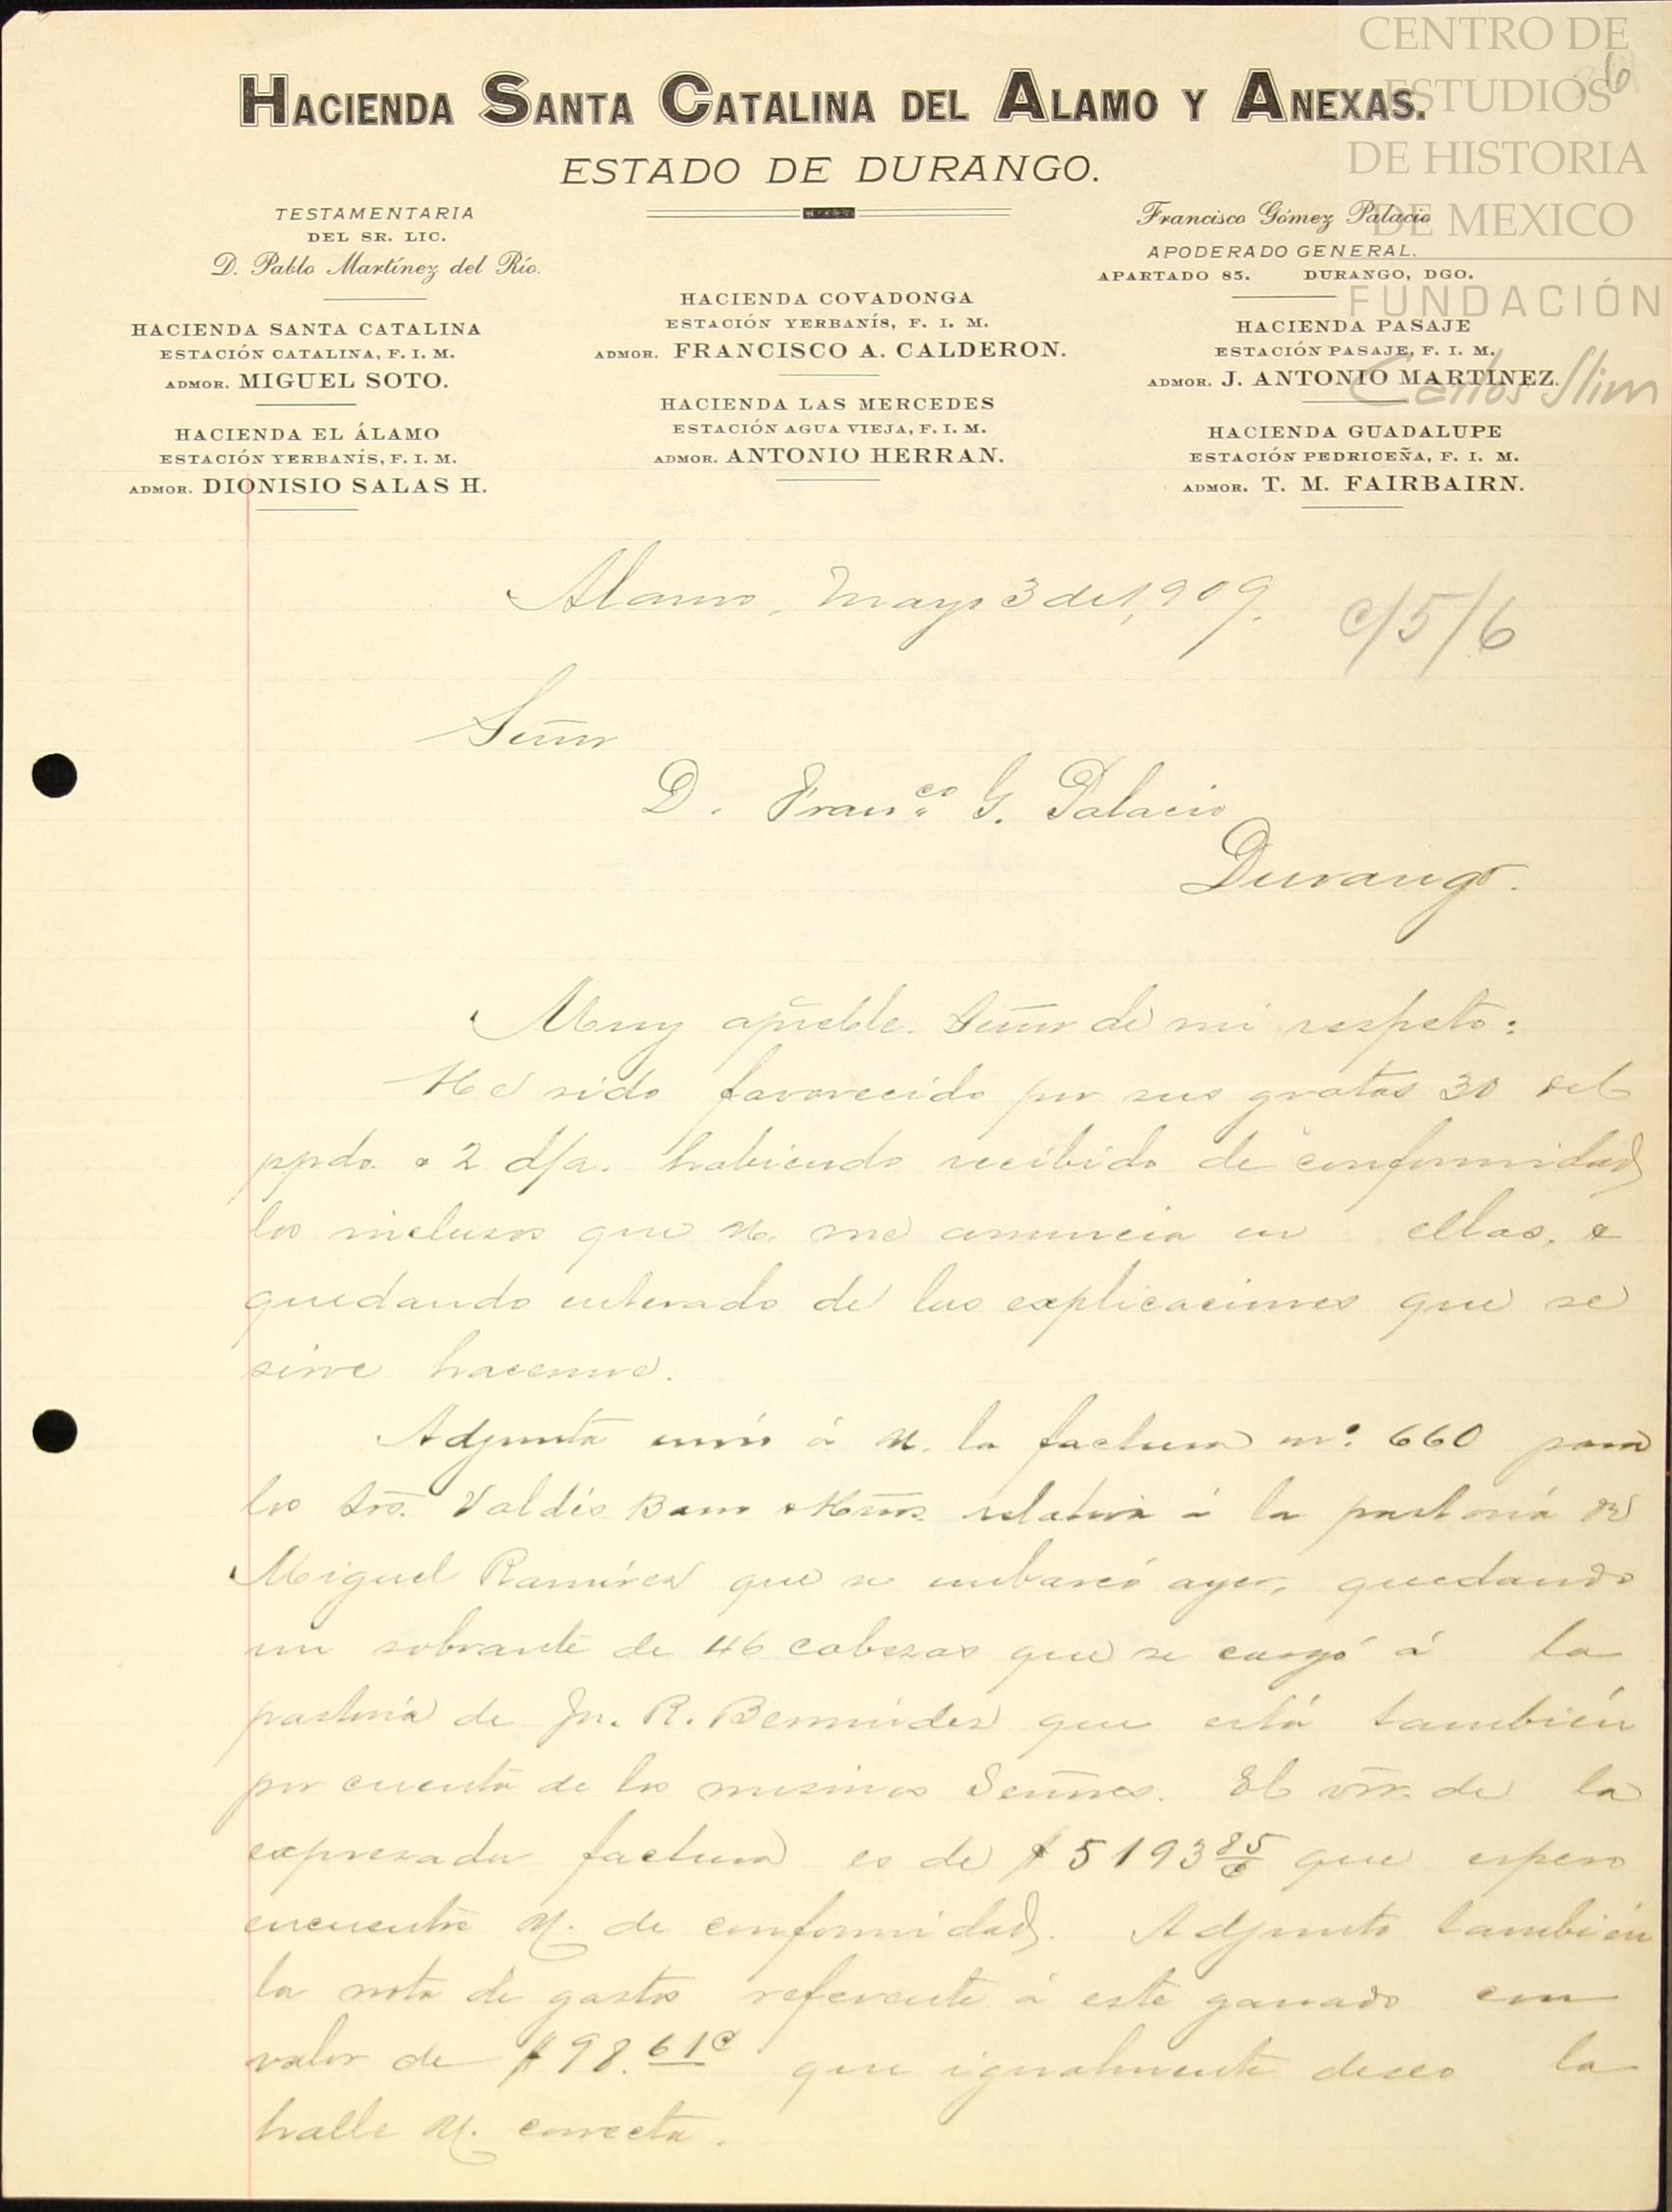 CENTRO DE
ESTUDIOS
DE HISTORIA
DE MEXICO
FUNDACIÓN
Carlos Slim
6
HACIENDA SANTA CATALINA DEL ALAMO Y ANEXAS.
ESTADO DE DURANGO.
TESTAMENTARIA
DEL SR. LIC.
D. Pablo Martínez del Río.
HACIENDA SANTA CATALINA
ESTACIÓN CATALINA, F. I. M.
ADMOR. MIGUEL SOTO.
HACIENDA EL ÁLAMO
ESTACIÓN YERBANÍS, F. I. M.
ADMOR. DIONISIO SALAS H.
HACIENDA COVADONGA
ESTACIÓN YERBANÍS, F. I. M.
ADMOR. FRANCISCO A. CALDERON.
HACIENDA LAS MERCEDES
ESTACIÓN AGUA VIEJA, F. I. M.
ADMOR. ANTONIO HERRAN.
Francisco Gómez Palacio
APODERADO GENERAL.
APARTADO 85. DURANGO, DGO.
HACIENDA PASAJE
ESTACIÓN PASAJE, F. I. M.
ADMOR. J. ANTONIO MARTINEZ.
HACIENDA GUADALUPE
ESTACIÓN PEDRICEÑA, F. I. M.
ADMOR. T. M. FAIRBAIRN.
Alamo, Mayo 3 de 1,909.
c/5/6
Señor
D. Franco. G. Palacio
Durango.
Muy apreble. Señor de mi respeto:
He sido favorecido por sus gratas 30 del
ppdo. & 2 d/a. habiendo recibido de conformidad
los inclusos que U. me anuncia en ellas, &
quedando enterado de las explicaciones que se
sirve hacerme.
Adjunta envío á U. la factura no. 660 para
los Srs. Valdés Hnos. relativa á la pastoría de
Miguel Ramírez que se embarcó ayer, quedando
un sobrante de 46 cabezas que se cargó á la
pastoría de Jn. R. Bermúdez que está también
por cuenta de los mismos Señores. El vr. de la
expresada factura es de $5193 85/c que espero
encuentre U. de conformidad. Adjunto también
la nota de gastos referente á este ganado con
valor de $98.61c que igualmente deseo la
halle U. correcta.